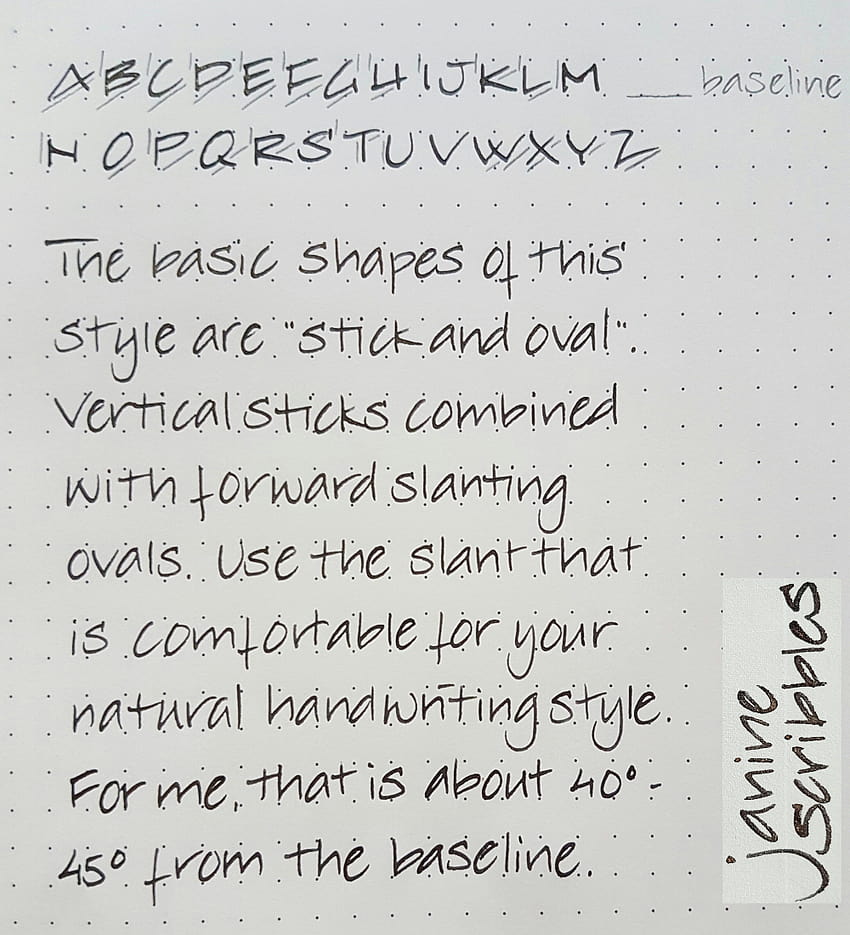 ABCDEFGHIJKLM __ baseline
NOPQRSTUVWXYZ
The basic shapes of this
style are "stick and oval".
Vertical sticks combined
with forward slanting
ovals. Use the slant that
is comfortable for your
natural handwriting style.
For me, that is about 40° -
45° from the baseline.
janine
scribbles